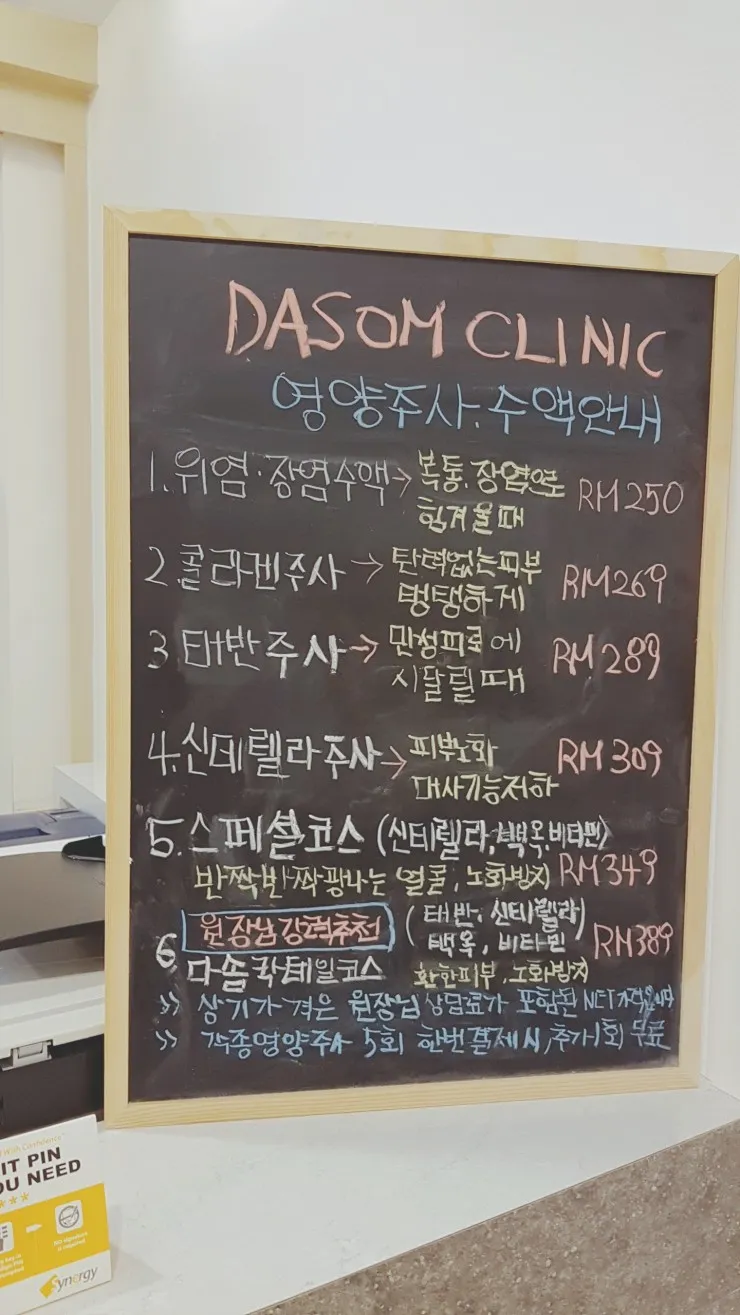 DASOM CLINIC
영양주사.수액안내
1.위염·장염수액→ 복통.장염으로 RM250
힘겨울때
2.콜라겐주사 → 탄력없는피부 RM269
탱탱하게
3 태반주사→ 만성피로에 RM289
시달릴때
4.신데렐라주사→ 피부노화 RM309
대사기능저하
5.스페셜코스 (신데렐라,백옥,비타민)
반짝반짝광나는 얼굴, 노화방지 RM349
6. 원장님강력추천 (태반, 신데렐라) RM389
백옥, 비타민
다솜칵테일코스 환한피부, 노화방지
>> 상기가격은 원장님상담료가 포함된 NET가격입니다
>> 각종영양주사 5회 한번결제시,추가1회 무료
With Confidence
IT PIN
OU NEED
Synergy